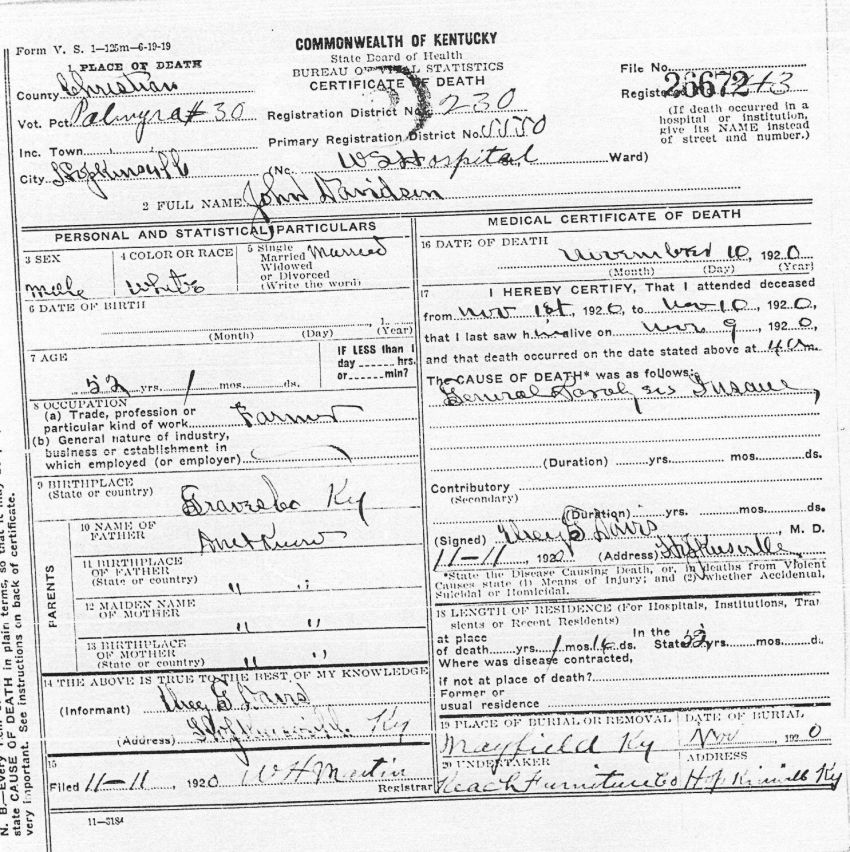 Form V. S. 1—125m—6-19-19
COMMONWEALTH OF KENTUCKY
State Board of Health
BUREAU OF VITAL STATISTICS
CERTIFICATE OF DEATH
1 PLACE OF DEATH
County Christian
Vot. Pct. Palmyra # 30
Inc. Town
City Hopkinsville
File No. 26672
Registered 43
(If death occurred in a
hospital or institution,
give its NAME instead
of street and number.)
Registration District No. 230
Primary Registration District No. 5550
(No. W S Hospital Ward)
2 FULL NAME John Davidson
PERSONAL AND STATISTICAL PARTICULARS
3 SEX
male
4 COLOR OR RACE
White
5 Single
Married
Widowed
or Divorced
(Write the word)
Married
6 DATE OF BIRTH
1
(Month) (Day) (Year)
7 AGE
52 yrs. 1 mos. ds.
IF LESS than 1
day hrs.
or min?
8 OCCUPATION
(a) Trade, profession or
particular kind of work Farmer
(b) General nature of industry,
business or establishment in
which employed (or employer)
9 BIRTHPLACE
(State or country)
Graves Co Ky
PARENTS
10 NAME OF
FATHER
Dont Know
11 BIRTHPLACE
OF FATHER
(State or country) " "
12 MAIDEN NAME
OF MOTHER " "
13 BIRTHPLACE
OF MOTHER
(State or country) " "
14 THE ABOVE IS TRUE TO THE BEST OF MY KNOWLEDGE
(Informant) Davis
(Address) Hopkinsville Ky
15
Filed 11-11, 1920 W H Martin
Registrar
11—3184
MEDICAL CERTIFICATE OF DEATH
16 DATE OF DEATH
November 10, 1920
(Month) (Day) (Year)
17
I HEREBY CERTIFY, That I attended deceased
from Nov 1st, 1920, to Nov 10, 1920,
that I last saw him alive on Nov 9, 1920,
and that death occurred on the date stated above at 4 a m.
The CAUSE OF DEATH* was as follows:
General Paralysis Insane
(Duration) yrs. mos. ds.
Contributory
(Secondary)
(Duration) yrs. mos. ds.
(Signed) Davis, M. D.
11-11, 1920 (Address) Hopkinsville
*State the Disease Causing Death, or, in deaths from Violent
Causes state (1) Means of Injury; and (2) whether Accidental,
Suicidal or Homicidal.
18 LENGTH OF RESIDENCE (For Hospitals, Institutions, Tran
sients or Recent Residents)
at place
of death yrs. 1 mos. 16 ds. In the State 52 yrs. mos. d
Where was disease contracted,
if not at place of death?
Former or
usual residence
19 PLACE OF BURIAL OR REMOVAL
Mayfield Ky
DATE OF BURIAL
Nov 1920
20 UNDERTAKER
Keach Furniture Co
ADDRESS
Hopkinsville Ky
N. B.—Every
state CAUSE OF DEATH in plain terms, so that it may
very important. See instructions on back of certificate.